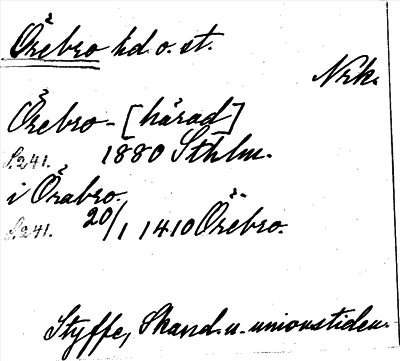 Örebro hd. o. st.
Nrk.
Örebro- [härad]
S. 241. 1880 Sthlm.
i Örabro.
S. 241. 20/1 1410 Örebro.
Styffe, Skand. u. unionstiden.